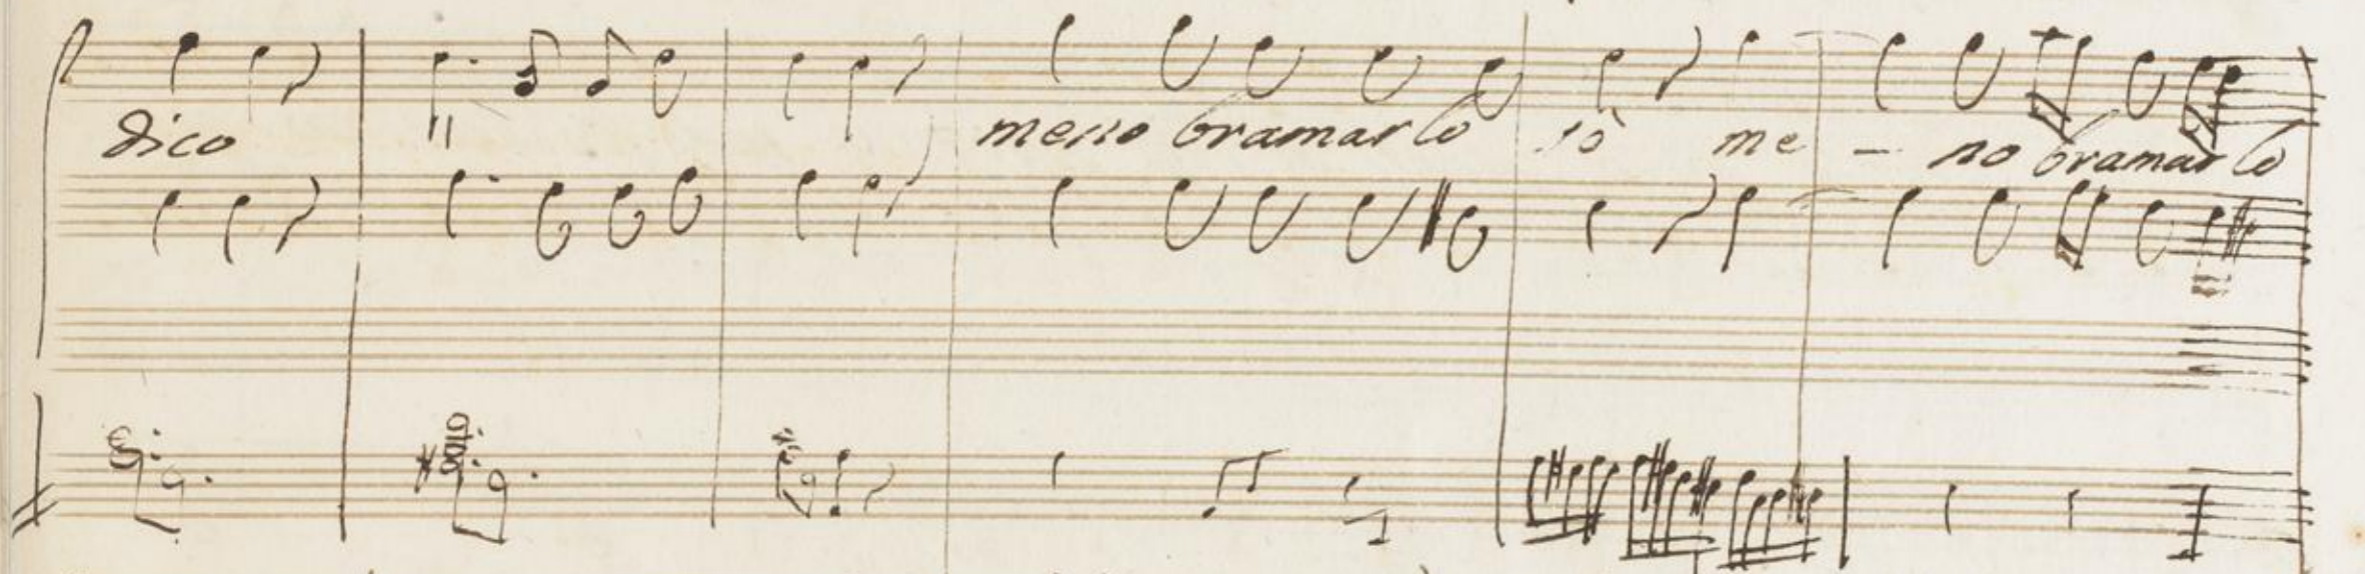 dico " meno bramarlo sò me - no bramarlo